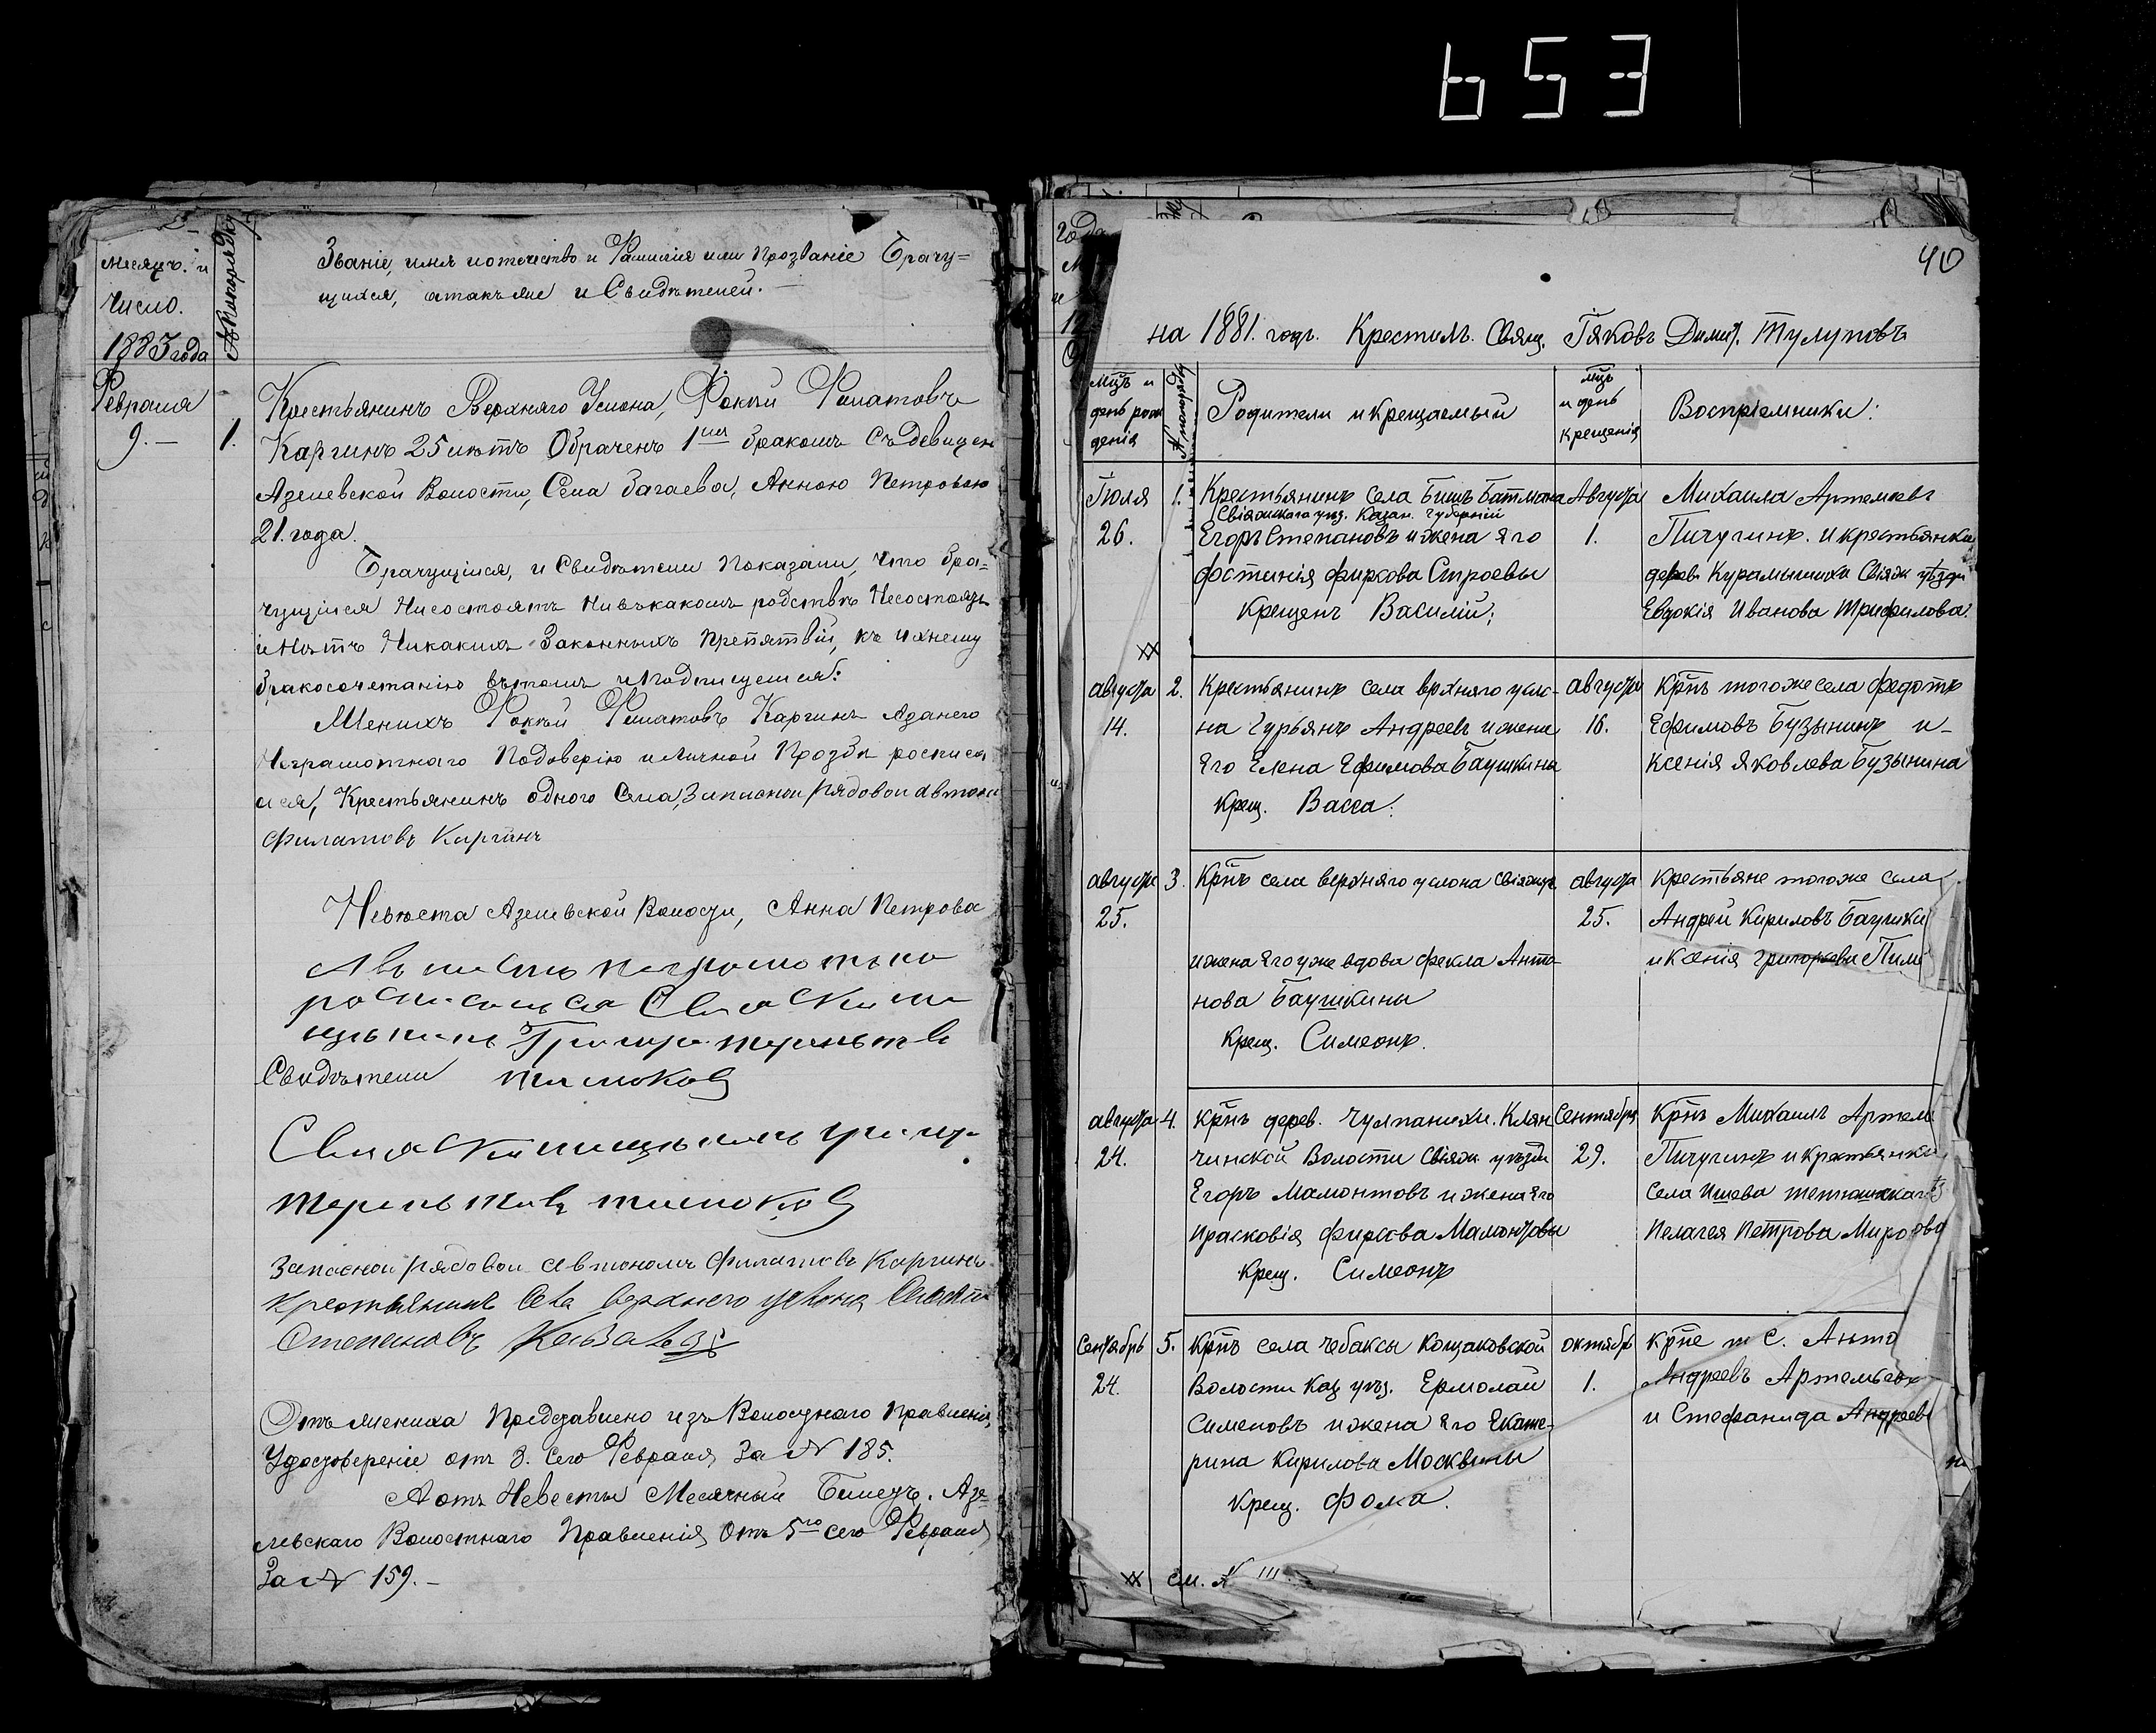 653
мѣсяцъ. и
число.
1883 года
№ По порядку
Званіе, имя и отчество и Фамилія или Прозваніе Брачу=
щихся, а такъ же и Свидѣтелей. —
Февраля
9. —
1.
Крестьянинъ Верхняго Услона, Фокѣй Филатовъ
Каргинъ 25 лѣтъ Обраченъ 1мъ бракомъ Съ девицею
Азелевской Волости, Села багаева, Анною Петровою
21. года.
Брачущіися, и Свидѣтели Показали, что бра=
чущіися Нисостоятъ Нивъкакомъ родствѣ Несостоятъ
и Нѣтъ Никакихъ Законныхъ Препятвій, къ ихнему
бракосочетанію вътомъ и подписуемся:
Женихъ Фокѣй Филатовъ Каргинъ Азанего
Неграмотнаго Подоверію и Личной Прозбѣ росписал
ся, Крестьянинъ одного Села, Запасной рядовой Автоном
Филатовъ Каргинъ
Невѣста Азелевской Волости, Анна Петрова
Свидѣтели
Запасной рядовой Автономъ Филатовъ Каргинъ
Крестьянинъ Села верхнего услона
Степановъ
Отъ жениха Представлено изъ Волостнаго Правленія,
Удостоверение отъ 3. Сего Февраля За № 185.
А отъ Невесты Месячный Билетъ. Азе=
левскаго Волостнаго Правленія Отъ 5го сего Февраля
За № 159. —
40
на 1881. годъ. Крестилъ. Свящ. Іяковъ Димит. Тулуповъ
Мцъ и
день рож
денія
№ по порядку
Родители и крещаемый
мцъ
и день
крещенія
Воспріемники:
Іюля
26.
1.
Крестьянинъ села Бишъ Батмана
Свіяжскаго уѣз. Казан. губерніи
Егоръ Степановъ и жена его
фостинія фирсова Строевы
Крещенъ Василій;
Августа
1.
Михаила Артемьевъ
Пичугинъ. и крестьянка
дерев. Курамышиха Свіяж уѣзда
Евдокія Иванова Трифилова.
XX
августа
14.
2.
Крестьянинъ села врхняго усло-
на Гурьянъ Андреевъ и жена
Его Елена Ефимова Баушкины
Крещ. Васса.
августа
16.
Крпъ тогоже села Федотъ
Ефимовъ Бузынинъ и-
Ксенія Яковлева Бузынина
августа
25.
3.
Крпъ села верхняго услона Свіяжск
и жена его уже вдова фекла Анто-
нова Баушкины
Крещ. Симеонъ.
августа
25.
Крестьяне тогоже села
Андрей Кириловъ Баушки
и Ксенія Григорьева Пили
августа
24.
4.
Крпъ дерев. Чулпанихи. Клян
чинской Волости Свіяж уѣзда
Егоръ Мамонтовъ и жена его
Прасковія фирсова Мамонтовы
Крещ. Симеонъ
Сентября
29.
Крпъ Михаилъ Артем
Пичугинъ и крестьянка
села Ишева тетюшскаго
Пелагея Петрова
Сентябрь
24.
5.
Крпъ села Чебаксы Кощаковской
Волости Каз уѣз. Ермолай
Сименовъ и жена его Екате-
рина Кирилова Москвины
Крещ. Фома.
октябрь
1.
крпе т С. Анто
Андреевъ Артемьевъ
и Стефанида Андреев
XX см. № III